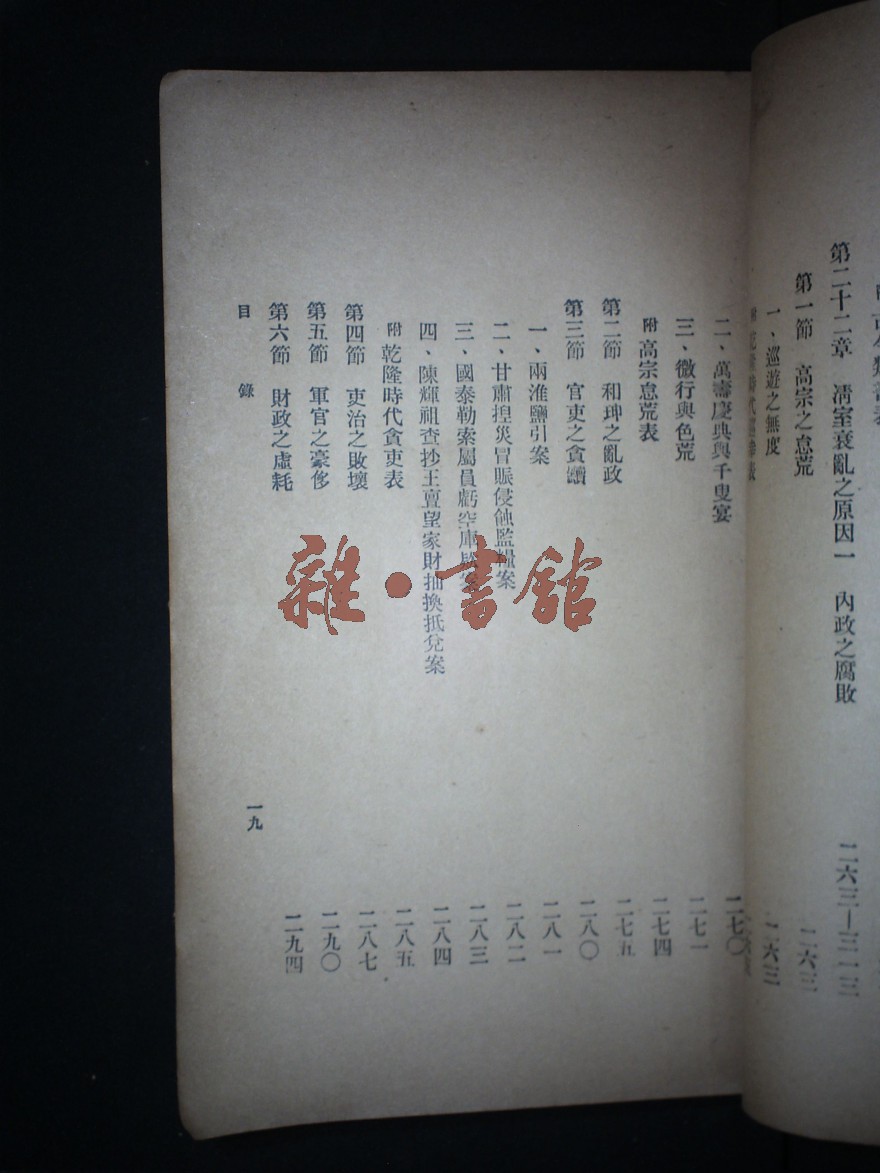 第二十二章　清室衰亂之原因一　內政之腐敗　二六三—三一三
第一節　高宗之怠荒　二六三
一、巡遊之無度　二六三
附
二、萬壽慶典與千叟宴　二七〇
三、微行與色荒　二七一
附 高宗怠荒表　二七四
第二節　和珅之亂政　二七五
第三節　官吏之貪黷　二八〇
一、兩淮鹽引案　二八一
二、甘肅揑災冒賑侵蝕監糧案　二八二
三、國泰勒索屬員虧空庫　二八三
四、陳輝祖查抄王亶望家財抽換抵兌案　二八四
附 乾隆時代貪吏表　二八五
第四節　吏治之敗壞　二八七
第五節　軍官之豪侈　二九〇
第六節　財政之虛耗　二九四
目錄　一九
雜·書館